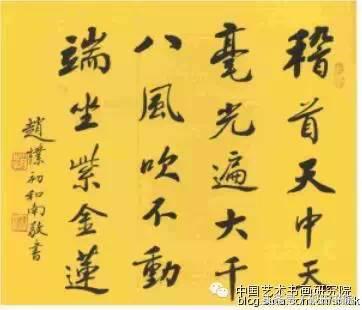 稽首天中天
毫光遍大千
八風吹不動
端坐紫金蓮
趙樸初和南敬書
中国艺术书画研究院